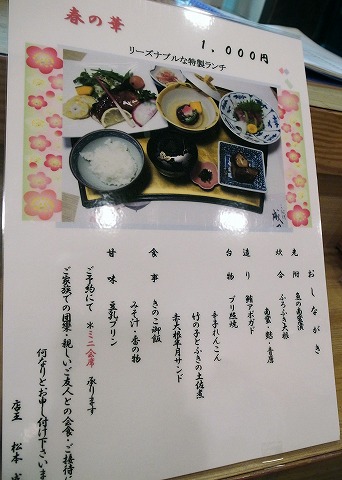 春の華
1,000円
リーズナブルな特製ランチ
おしながき
先附 魚の南蛮漬
炊合 ふろふき大根
南蛮・麩・青唐
造り 鮪アボガド
台物 ブリ照焼
辛子れんこん
竹の子とふきの土佐煮
赤大根半月サンド
食事 きのこ御飯
みそ汁・香の物
甘味 豆乳プリン
ご予約にて ※ミニ会席 承ります
ご家族での団欒・親しいご友人との会食・ご接待
何なりとお申し付け下さいま
店主 松本